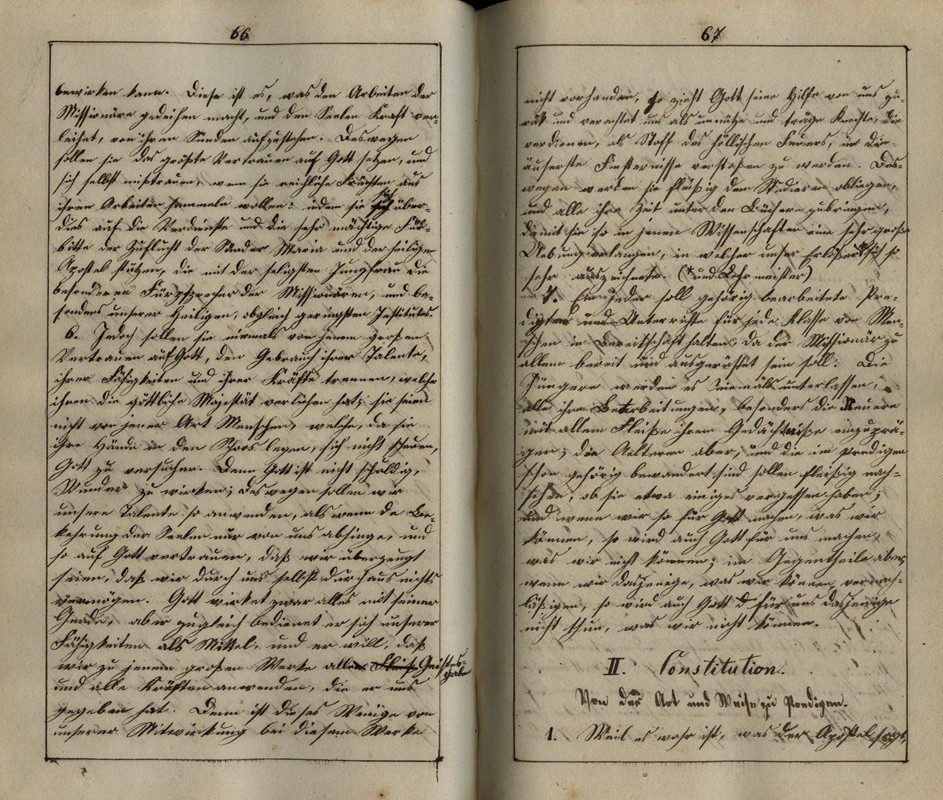 66
bewirken kann. Diese ist es, was den Arbeiten der
Missionäre gedeihen macht, und den Seelen Kraft ver-
leihet, von ihren Sünden aufzustehen. Deswegen
sollen sie das größte Vertrauen auf Gott setzen, und
sich selbst mißtrauen, wenn sie reichliche Früchten aus
ihren Arbeiten sammeln wollen: indem sie sich über-
dies auf die Verdienste und die sehr mächtige Für-
bitte der Zuflucht der Sünder Maria und der heiligen
Apostel stützen, die mit der seligsten Jungfrau die
besonderen Fürsprecher der Missionären, und be-
sonders unserer Heiligen, obgleich geringsten Institutes
6. Jedoch sollen sie niemals von jenem großen
Vertrauen auf Gott, den Gebrauch ihrer Talente,
ihrer Fähigkeiten und ihrer Kräfte trennen, welche
ihnen die göttliche Majestät verliehen hat; sie seien
nicht von jener Art Menschen, welche, da sie
ihre Hände in den Schoos legen, sich nicht scheuen,
Gott zu versuchen. Denn Gott ist nicht schuldig,
Wunder zu wirken; deswegen sollen wir
unsere Talente so anwenden, als wenn die Be-
kehrung der Seelen nur von uns abhinge, und
so auf Gott vertrauen, daß wir überzeugt
seien, daß wir durch uns selbst durchaus nichts
vermögen. Gott wirket zwar alles mit seiner
Gnade, aber zugleich bedienet er sich unserer
Fähigkeiten als Mittel, und er will, daß
wir zu jenem großen Werke alle Geistes-
gabe
und alle Kräften anwenden, die er uns
gegeben hat. Denn ist dieses Wenige von
unserer Mitwirkung bei diesem Werke
67
nicht vorhanden, so zieht Gott seine Hilfe von uns zu-
rük und verachtet uns als unnütze und träge Knechte, die
verdienen, als Stoff des höllischen Feuers, in die
äusserste Finsternisse verstoßen zu werden. Des-
wegen werden sie fleißig dem Studieren obliegen,
und alle ihre Zeit unter den Büchern zubringen,
damit sie so in jenen Wissenschaften eine sehr große
Uebung erlangen, in welcher unser sich so
sehr auszeichnete. (und Lehrmeister)
7. Ein Jeder soll gehörig bearbeitete Pre-
digten und Unterrichte für jede Klasse von Men-
schen in Bereitschaft halten, da der Missionär zu
allem bereit und ausgerüstet sein soll. Die
Jüngere werden es niemals unterlassen,
alle ihre Bearbeitungen, besonders die Neuere
mit allem Fleiße ihrem Gedächtniße einzuprä-
gen; die Aeltern aber, und die im Predigen
schon gehörig bewandert sind sollen fleißig nach-
sehen, ob sie etwa einiges vergessen haben;
und wenn wir so für Gott machen, was wir
können, so wird auch Gott für uns machen,
was wir nicht können; im Gegentheile aber,
wenn wir dasjenige, was wir können vernach-
läßigen, so wird auch Gott für uns dasjenige
nicht thun, was wir nicht können.
II. Constitution.
Von der Art und Weise zu Predigen.
1. Weil es wahr ist, was der Apostel sagt,